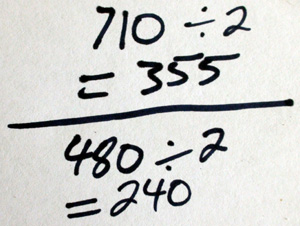 710 ÷ 2
= 355
480 ÷ 2
= 240